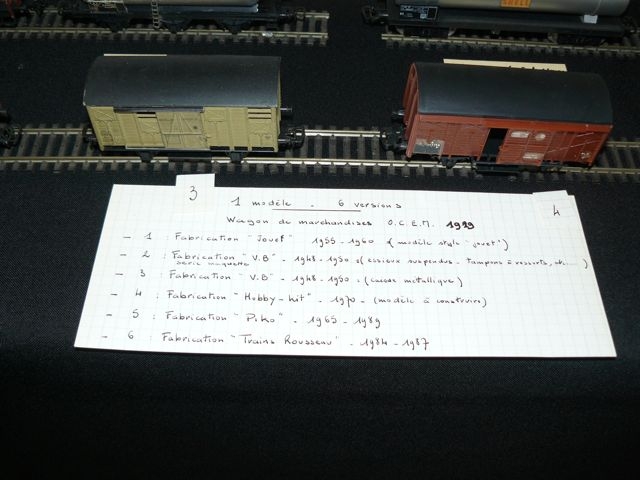 SHELL
3
4
1 modèle - 6 versions
Wagon de marchandises O.C.E.M. 1919
- 1 : Fabrication "Jouef" 1955-1960 (modèle style "jouet")
- 2 : Fabrication "V.B" - 1948-1950 : (essieux suspendus - Tampons à ressorts, etc....)
série maquette
- 3 : Fabrication "V.B" - 1948-1950 : (caisse métallique)
- 4 : Fabrication "Hobby-kit" - 1970 - (modèle à construire)
- 5 : Fabrication "Piko" - 1965-1989
- 6 : Fabrication "Trains Rousseau" - 1984-1987